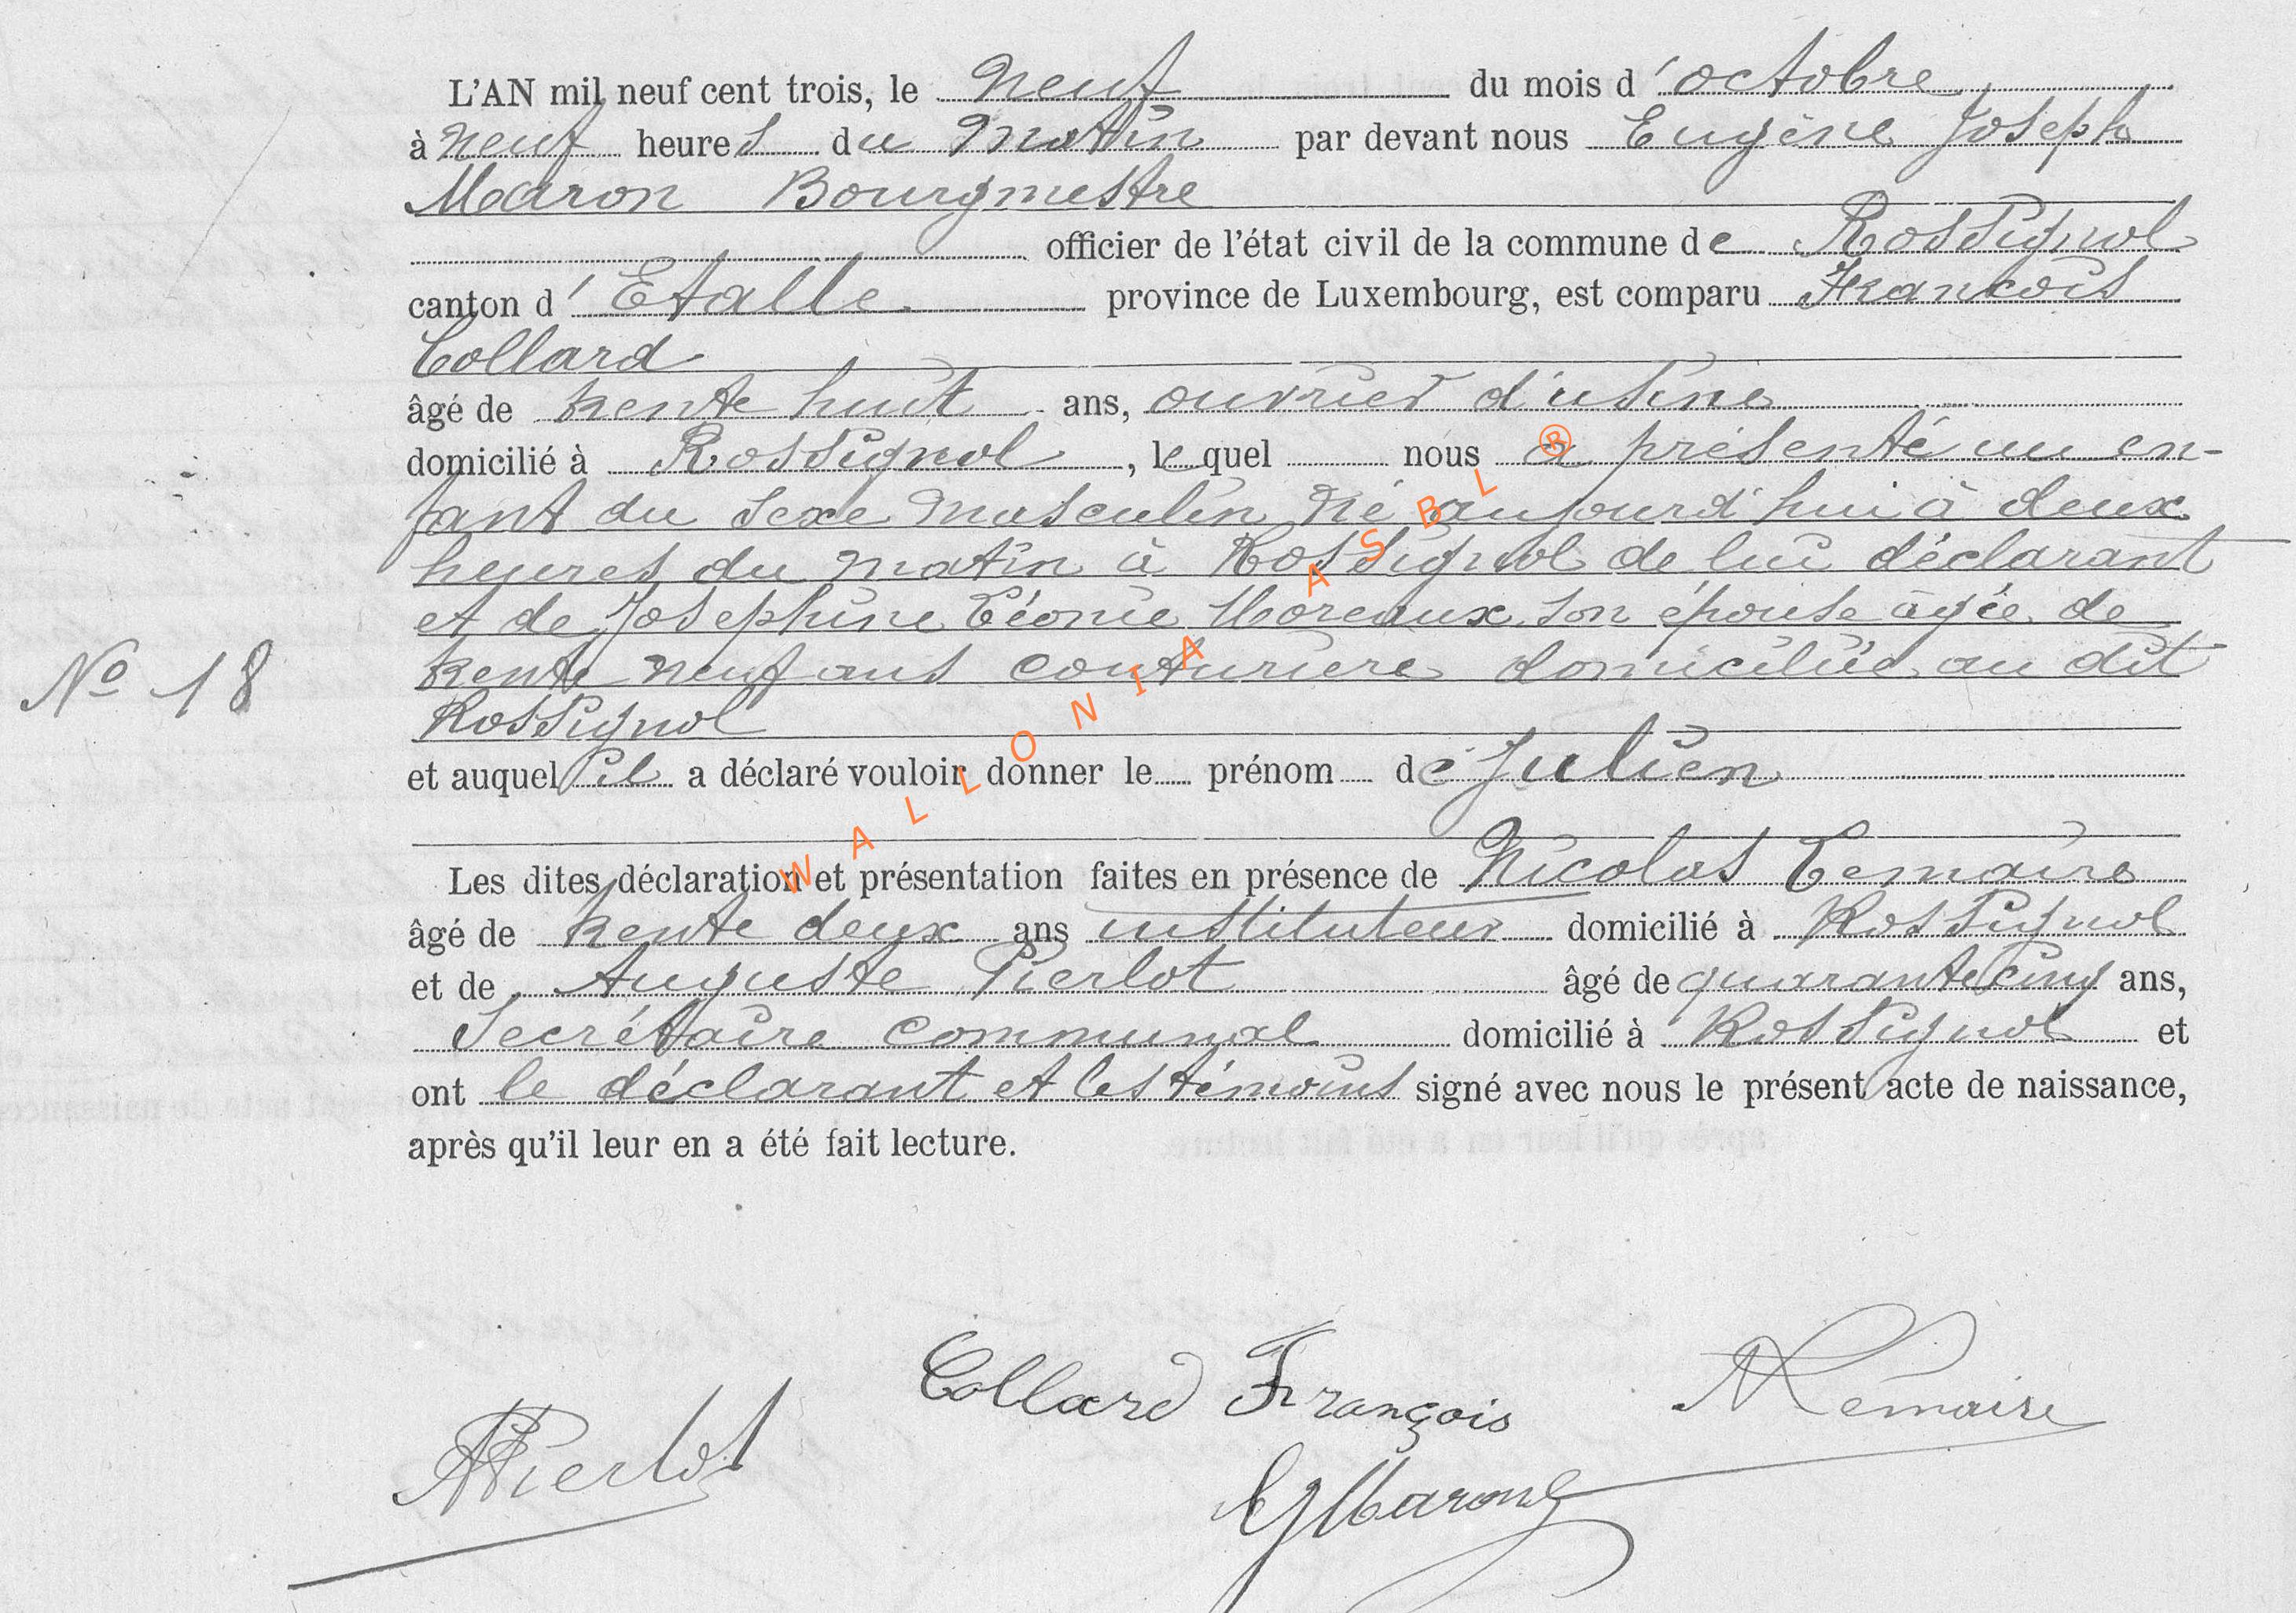 L'AN mil neuf cent trois, le neuf du mois d'octobre
à neuf heures du matin par devant nous Eugène Joseph
Maron Bourgmestre
officier de l'état civil de la commune de Rossignol
canton d'Etalle province de Luxembourg, est comparu François
Collard
âgé de trente huit ans, ouvrier d'usine
domicilié à Rossignol, lequel nous a présenté un en-
fant du sexe masculin né aujourd'hui à deux
heures du matin à Rossignol de lui déclarant
et de Joséphine Léonie Moreaux son épouse âgée de
trente neuf ans couturière domiciliée au dit
N° 18
Rossignol
et auquel il a déclaré vouloir donner le prénom de Julien
Les dites déclaration et présentation faites en présence de Nicolas Lemaire
âgé de trente deux ans instituteur domicilié à Rossignol
et de Auguste Pierlot âgé de quarante cinq ans,
Secrétaire communal domicilié à Rossignol et
ont le déclarant et les témoins signé avec nous le présent acte de naissance,
après qu'il leur en a été fait lecture.
Collard François
NLemaire
APierlot
EJMaron
WALLONIA ASBL ®